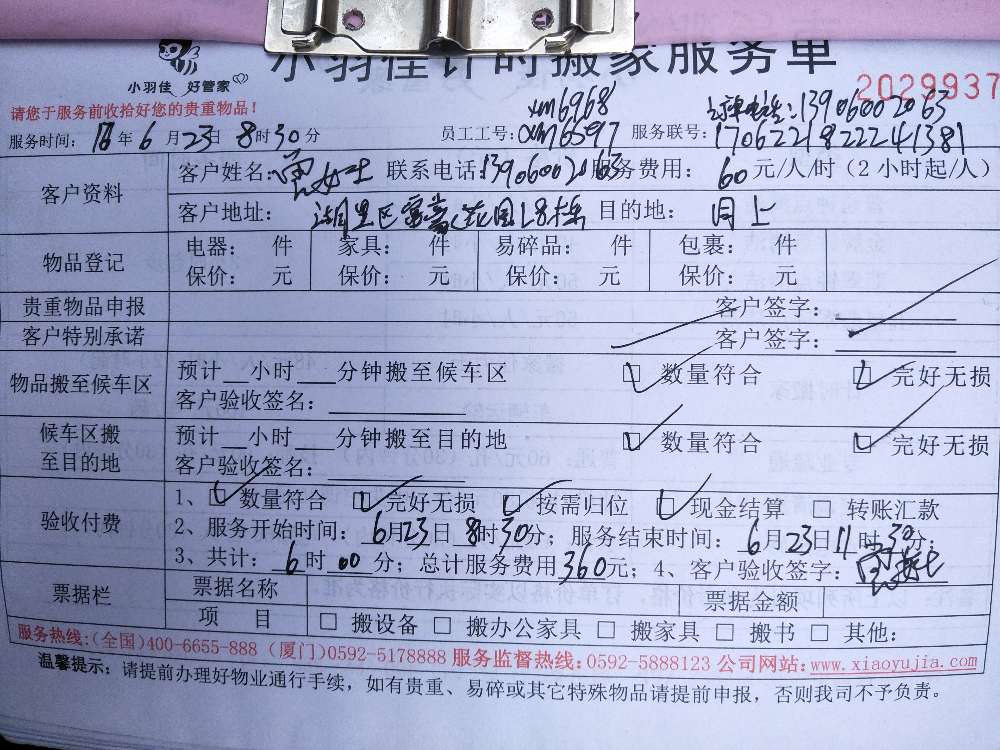 小羽佳 好管家
小羽佳计时搬家服务单
2029937
请您于服务前收拾好您的贵重物品！
xm6968
13906002063
服务时间： 年6月23日8时30分 员工工号：xm6597 服务联号：17062218222241381
客户资料
客户姓名： 女士 联系电话：13906002063 服务费用：60元/人/时（2小时起/人）
客户地址： 湖里区 花园L8栋 目的地： 同上
物品登记
电器： 件 家具： 件 易碎品： 件 包裹： 件
保价： 元 保价： 元 保价： 元 保价： 元
贵重物品申报 客户签字：
客户特别承诺 客户签字：
物品搬至候车区
预计__小时___分钟搬至候车区 □ 数量符合 □ 完好无损
客户验收签名：
候车区搬至目的地
预计__小时___分钟搬至目的地 □ 数量符合 □ 完好无损
客户验收签名：
验收付费
1、□ 数量符合 □ 完好无损 □ 按需归位 □ 现金结算 □ 转账汇款
2、服务开始时间：6月23日8时30分；服务结束时间：6月23日11时30分；
3、共计：6时00分；总计服务费用360元；4、客户验收签字：
票据栏
票据名称 票据金额
项 目 □ 搬设备 □ 搬办公家具 □ 搬家具 □ 搬书 □ 其他：
服务热线：（全国）400-6655-888（厦门）0592-5178888 服务监督热线：0592-5888123 公司网站：www.xiaoyujia.com
温馨提示：请提前办理好物业通行手续，如有贵重、易碎或其它特殊物品请提前申报，否则我司不予负责。